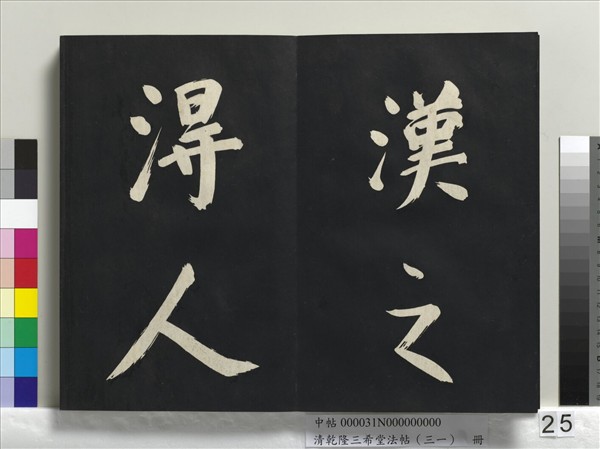 漢之
得人
中帖 000031N000000000
清乾隆三希堂法帖（三一） 冊
25